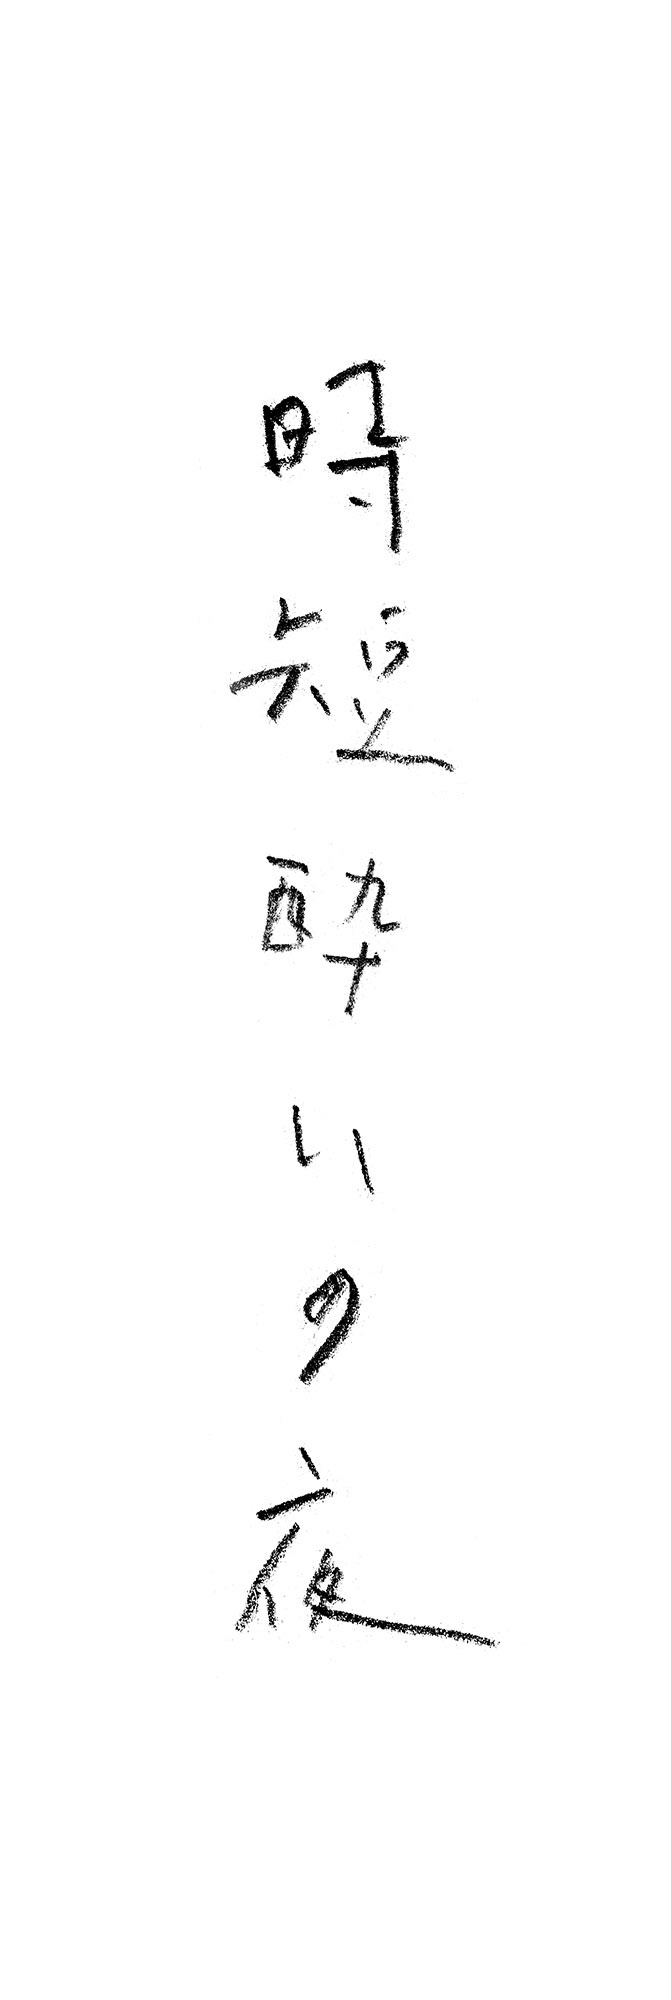 時短酔いの夜